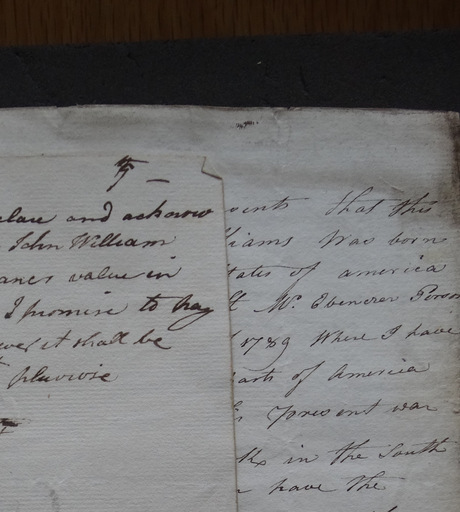 and acknow
John William
value in
I promise to pay
it shall be
pluviose
that this
liams was born
tates of america
Mr. Ebenezer Person
1789 Where I have
arts of America
present war
in the South
have the